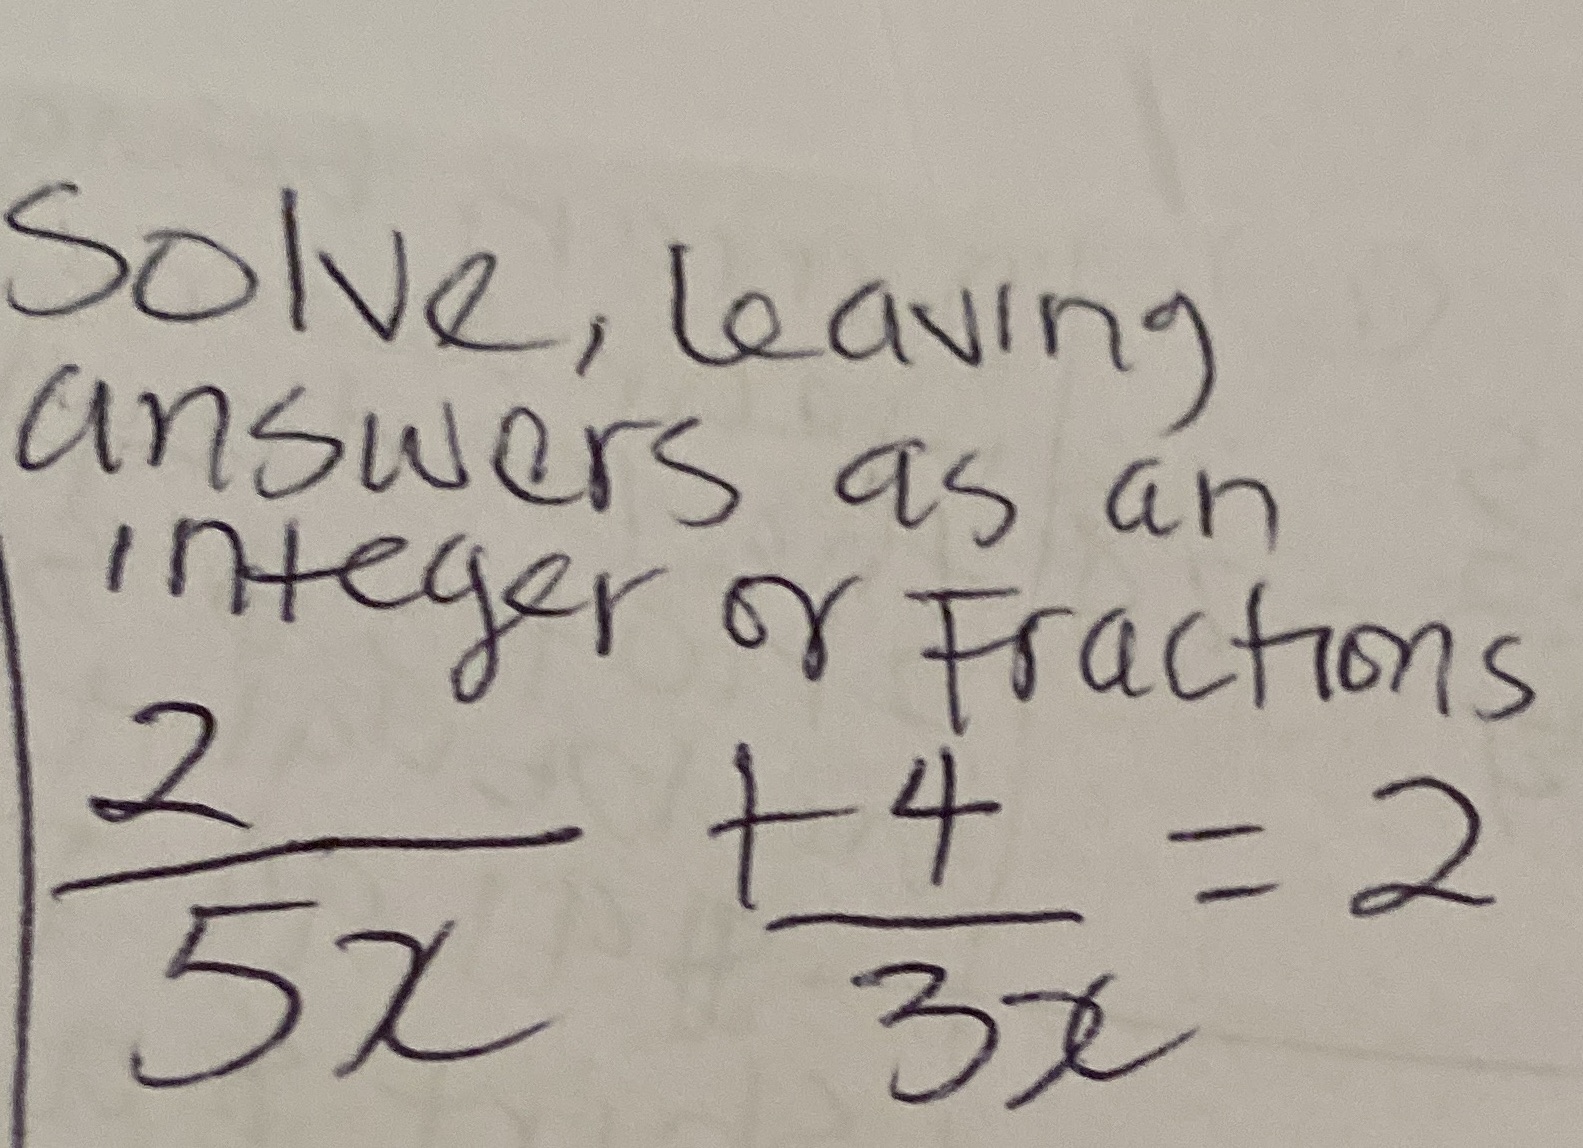 Solve, leaving
answers as an
integer or Fractions
2/5x + 4/3x = 2